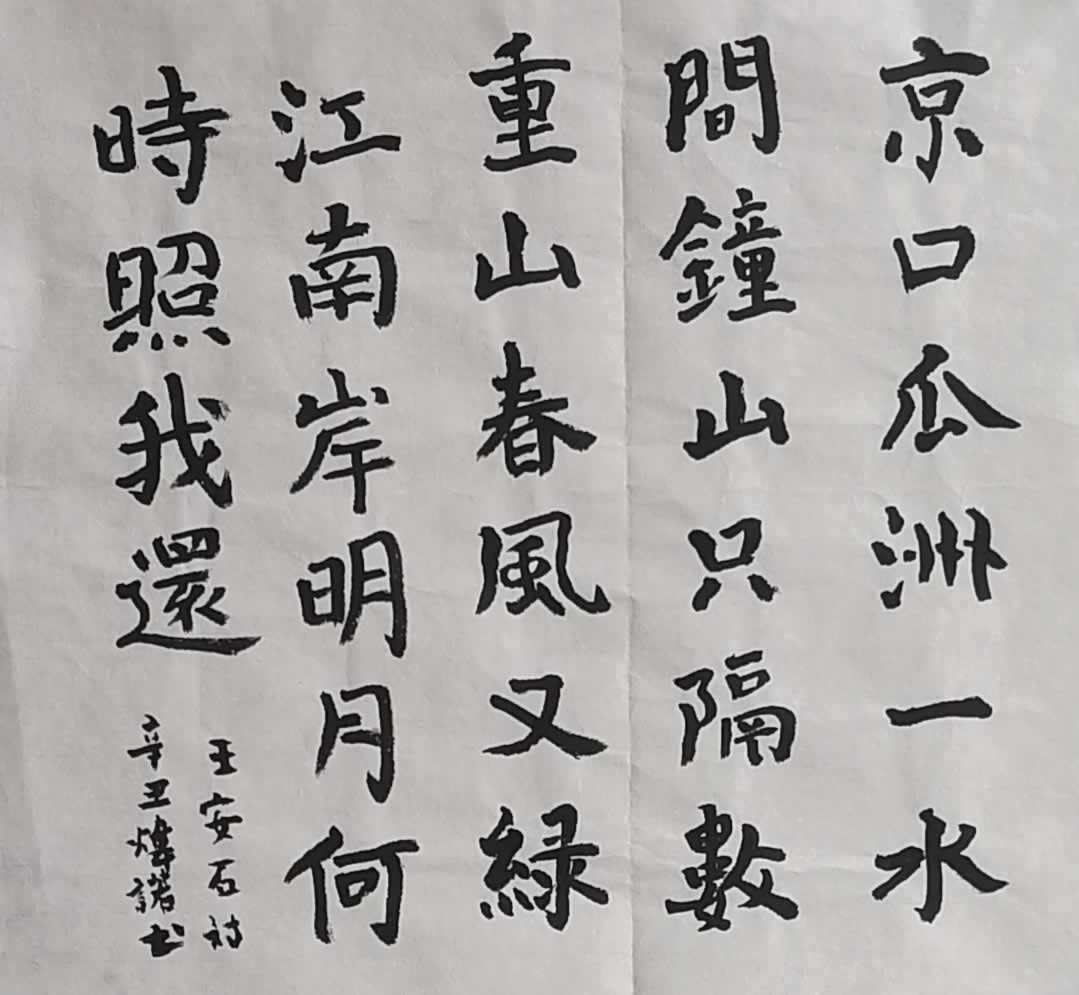 京口瓜洲一水
間鐘山只隔數
重山春風又綠
江南岸明月何
時照我還
王安石詩
辛丑煒諾书